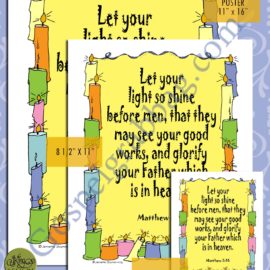 Let your
light so shine
POSTER
11" x 16"
8 1/2" x 11"
Let your
light so shine
before men, that they
may see your good
works, and glorify
your Father which
is in heaven.
Matthew
Let your
light so shine
before men, that they
may see your good
works, and glorify
your Father which
is in heaven.
Matthew 5:16